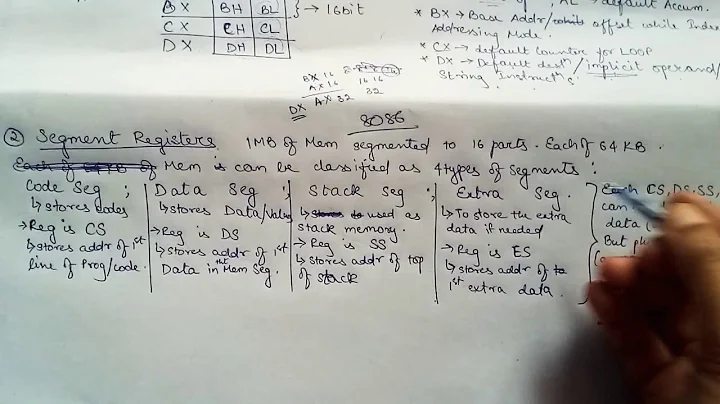 BX BH BL } → 16bit
CX CH CL
DX DH DL
default Accum.
* BX → Base Addr/ offset while Index
Addressing Mode.
* CX → default counter for LOOP
* DX → Default destn/implicit operand/
String Instructns.
BX 16
AX 16
DX AX 32
16 16
32
8086
② Segment Registers 1MB of Mem segmented to 16 parts. Each of 64 KB.
Mem is can be classified as 4 types of segments :
Code Seg ; Data Seg ; Stack Seg ; Extra Seg.
↳ stores codes
→ Reg is CS
↳ stores addr of 1st
line of Prog/code.
↳ stores Data/Value
→ Reg is DS
↳ stores addr of 1st
Data in the Mem Seg.
↳ used as
stack memory.
→ Reg is SS
↳ stores addr of top
of stack
↳ To store the extra
data if needed
→ Reg is ES
↳ stores addr of
1st extra data.
Each CS, DS, SS,
can
data
But